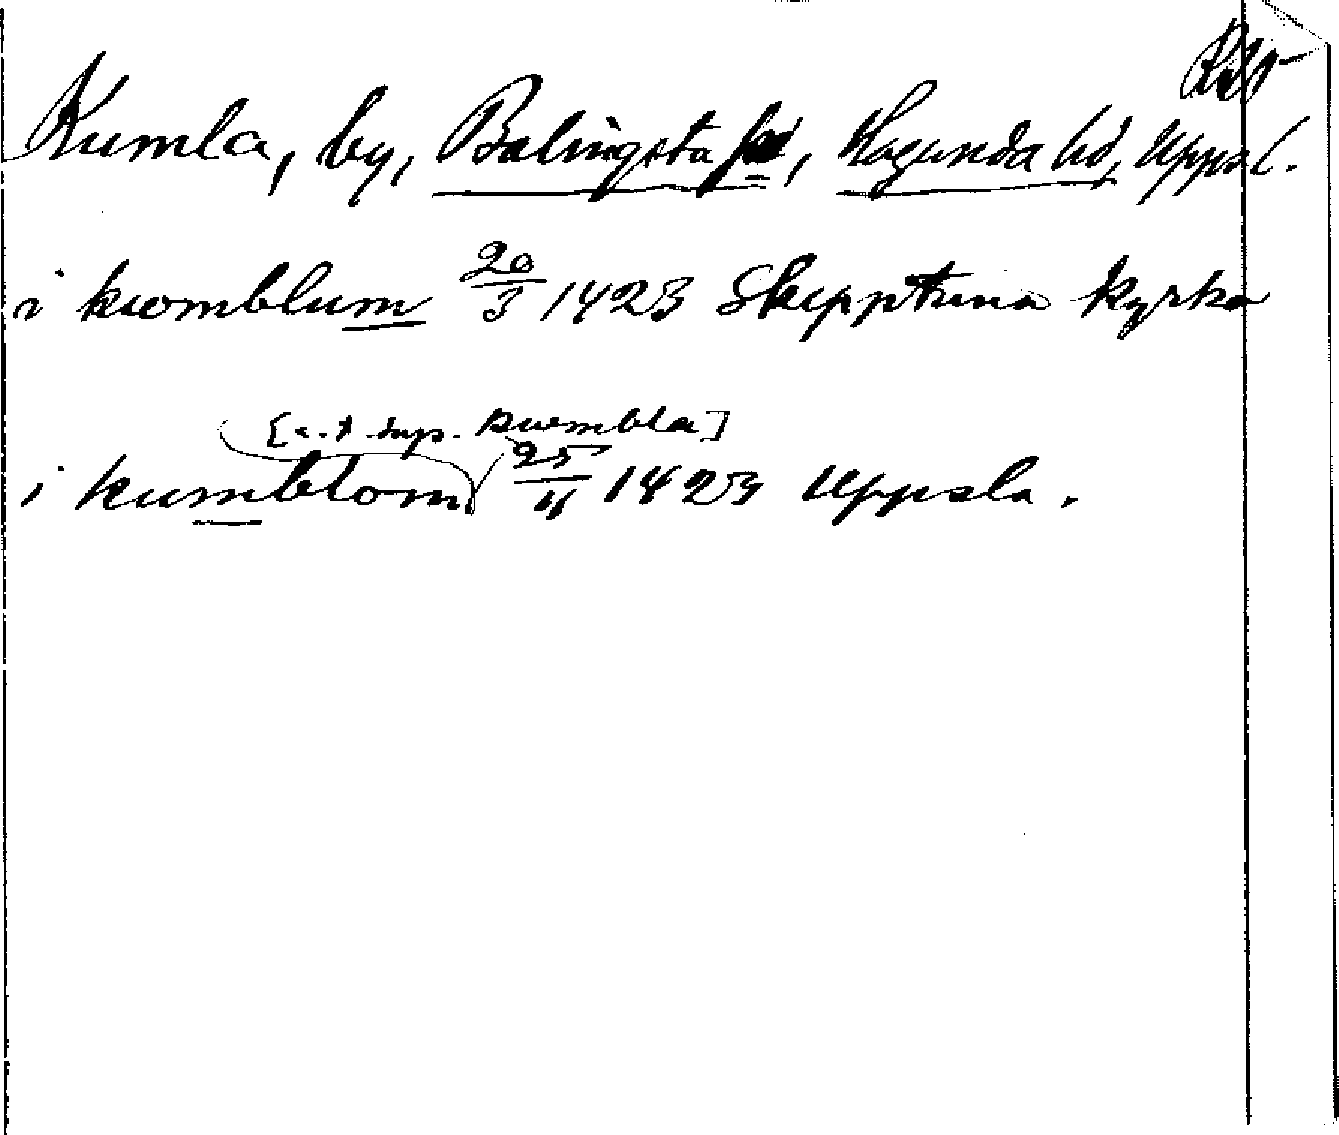 Kumla, by, Balingsta sn, Hagunda hd, Uppsl.
i kwmblum 20/3 1423 Skepptuna kyrka
kwmbla]
i kumblom 25/11 1423 Uppsala.